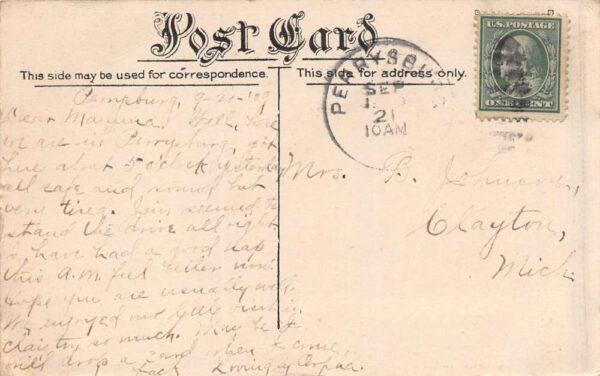 Post Card
This side may be used for correspondence.
This side for address only.
U.S. POSTAGE
ONE CENT
PERRYSBURG
SEP
21
10AM
Perrysburg, 9-21-'09
Dear Mamma. Well, here
we are in Perrysburg, got
here about 5 o'clock yesterday
all safe and sound but
very tired. seemed to
stand the drive all right
have had a good nap
this A.M. feel better now.
Hope you are usually well.
We enjoyed our visiting
so much. May be I
will drop a card when I come
back Loving
Mrs. B. Johnson,
Clayton,
Mich.